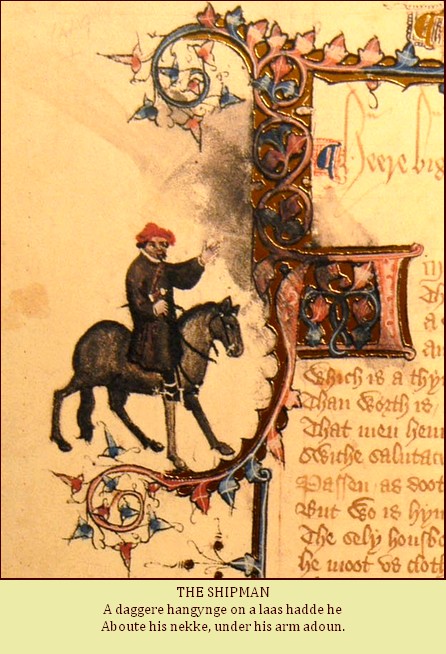 Heere big
Which is a thy
Than worth is
That men hem
Swiche salutaci
Passen as doot
But wo is hym
The sely housbo
he moot vs cloth
THE SHIPMAN
A daggere hangynge on a laas hadde he
Aboute his nekke, under his arm adoun.